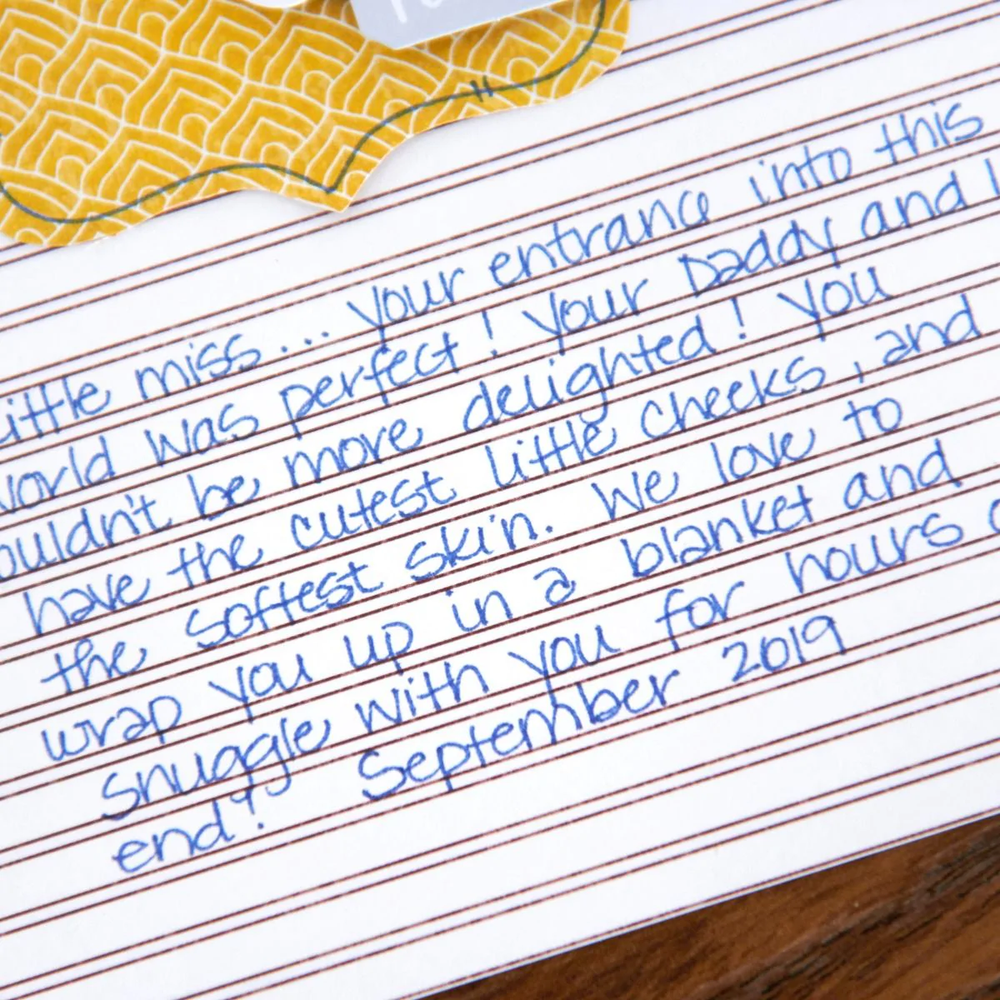 little miss... your entrance into this
world was perfect! your Daddy and I
couldn't be more delighted! You
have the cutest little cheeks, and
the softest skin. We love to
wrap you up in a blanket and
snuggle with you for hours
end! September 2019